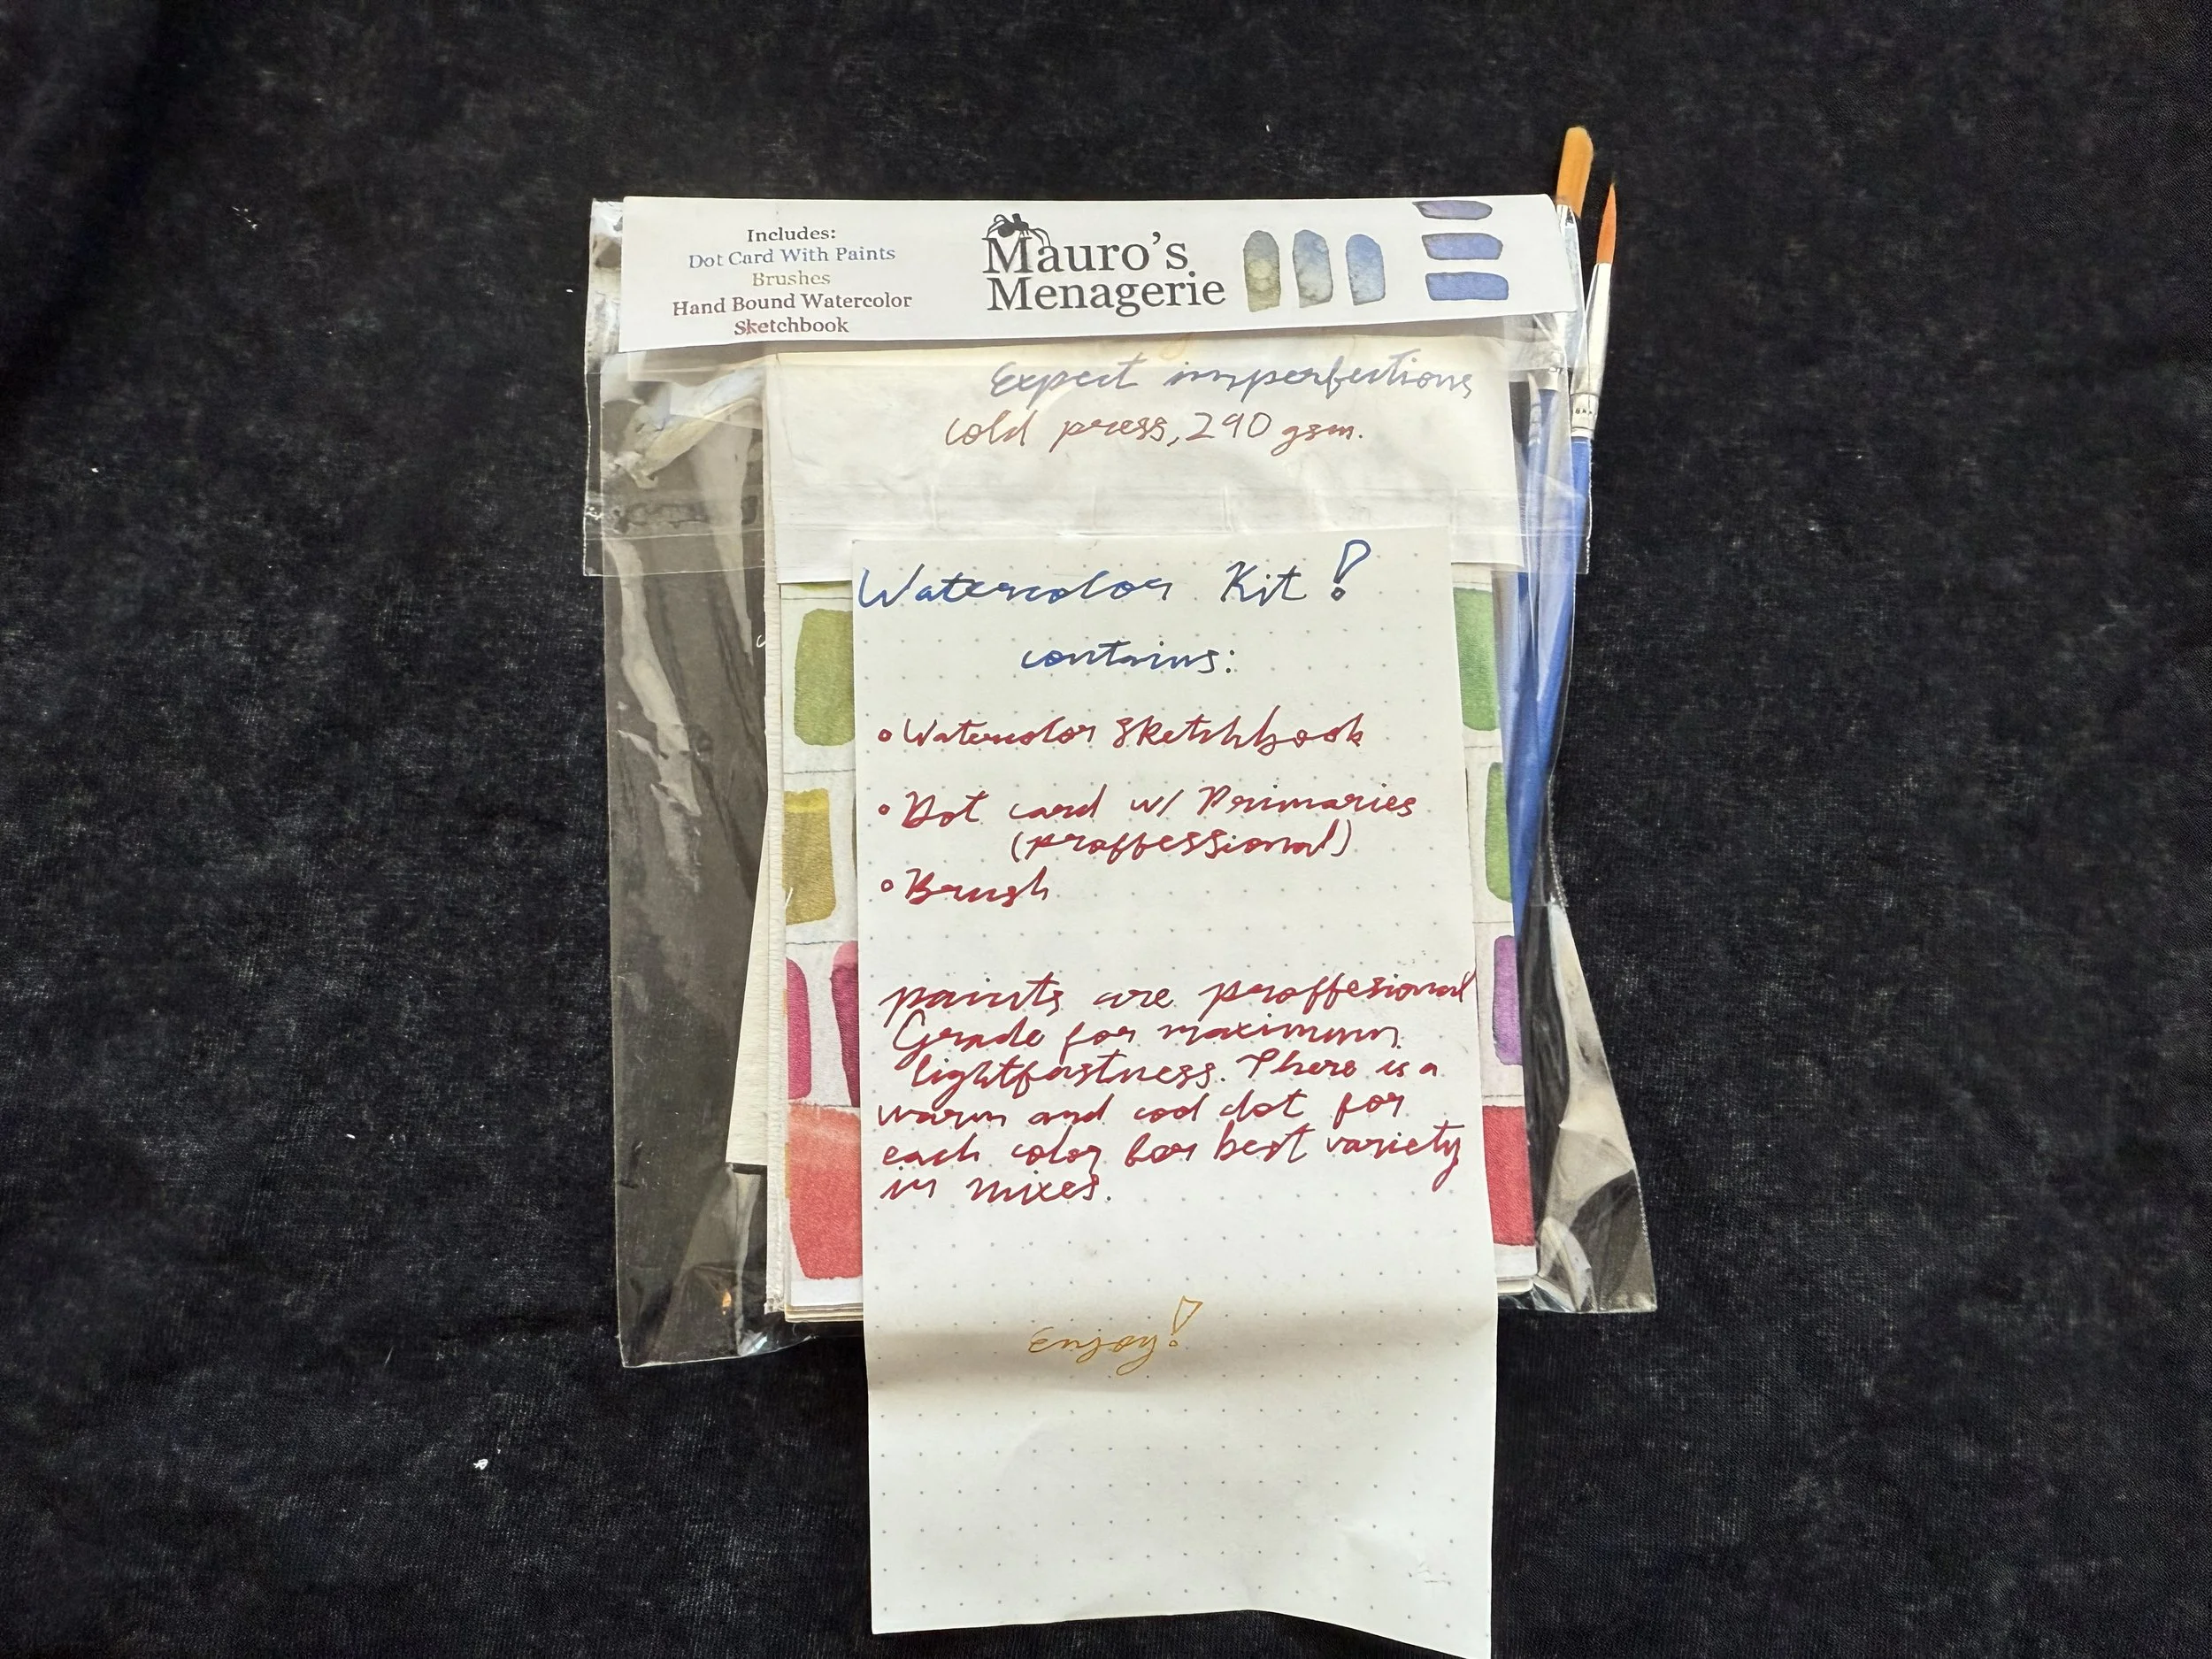 Includes:
Dot Card With Paints
Brushes
Hand Bound Watercolor
Sketchbook
Mauro's
Menagerie
Expect imperfections
cold press, 290 gsm.
Watercolor Kit!
contains:
• Watercolor Sketchbook
• Dot card w/ Primaries
(proffessional)
• Brush
paints are proffesional
Grade for maximum
lightfastness. There is a
warm and cool dot for
each color for best variety
in mixes.
Enjoy!